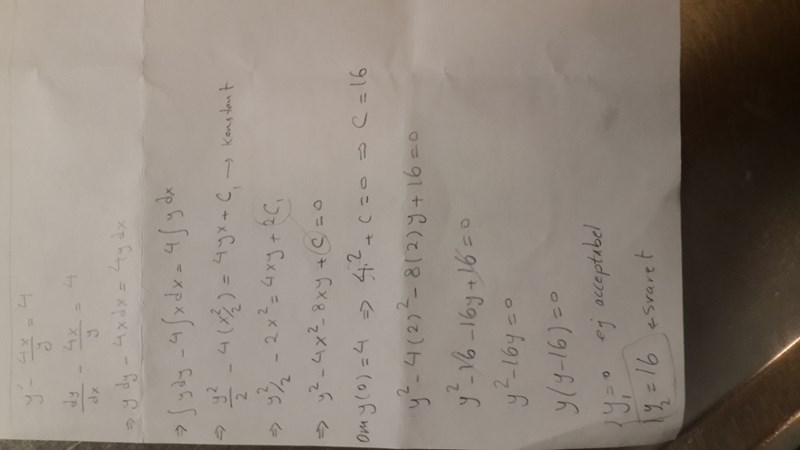 y' - 4x/y = 4
dy/dx - 4x/y = 4
⇒ y dy - 4x dx = 4y dx
⇒ ∫y dy - 4∫x dx = 4∫y dx
⇒ y²/2 - 4(x²/2) = 4yx + C₁ → konstant
⇒ y²/2 - 2x² = 4xy + 2C₁
⇒ y² - 4x² - 8xy + C = 0
om y(0) = 4 ⇒ 4² + C = 0 ⇒ C = 16
y² - 4(2)² - 8(2)y + 16 = 0
y² - 16 - 16y + 16 = 0
y² - 16y = 0
y(y-16) = 0
{ y₁ = 0 ej acceptabel
y₂ = 16 ← svaret